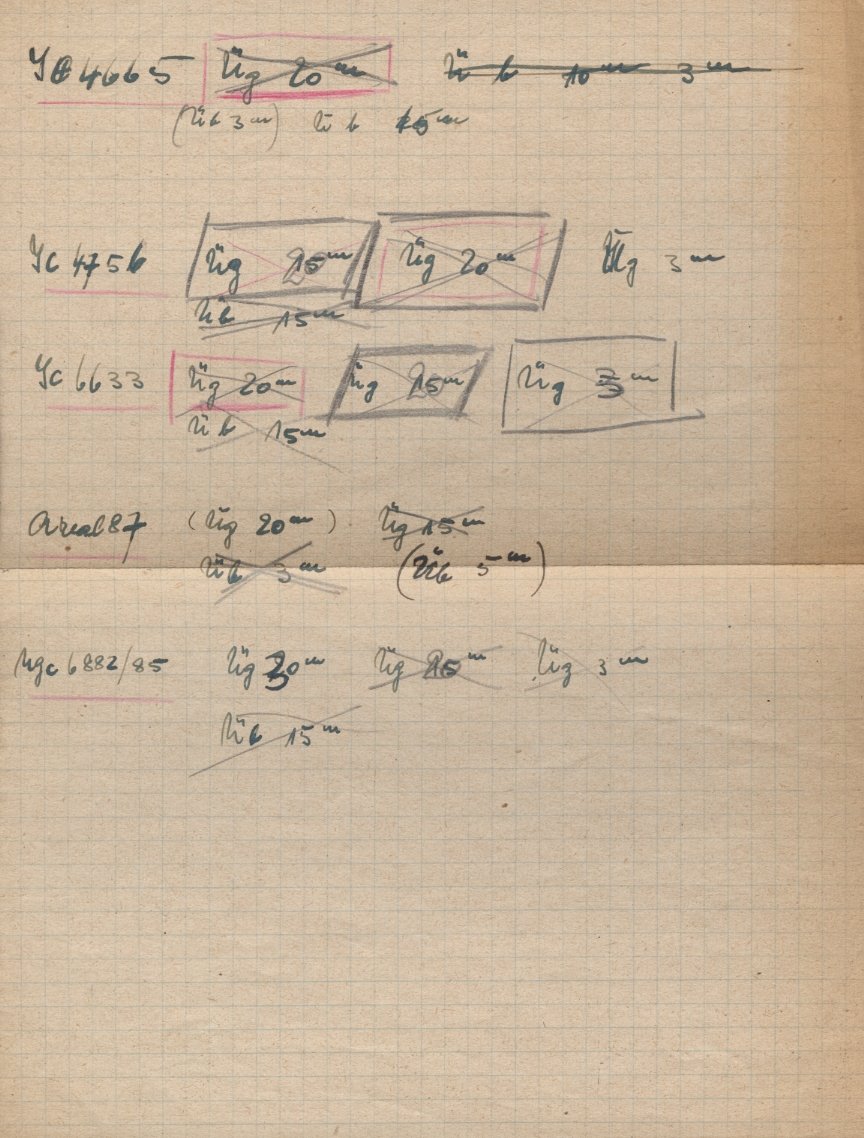 JC 4665 Üg 20ᵐ Üb 10ᵐ 3ᵐ
(Üb 3ᵐ) Üb 15ᵐ
Jc 4756 Üg 25ᵐ Üg 20ᵐ Üg 3ᵐ
Üb 15ᵐ
Jc 6633 Üg 20ᵐ Üg 25ᵐ Üg 3ᵐ
Üb 15ᵐ
Areal 87 (Üg 20ᵐ) Üg 15ᵐ
Üb 3ᵐ (Üb 5ᵐ)
Ngc 6882/85 Üg 30ᵐ Üg 15ᵐ Üg 3ᵐ
Üb 15ᵐ